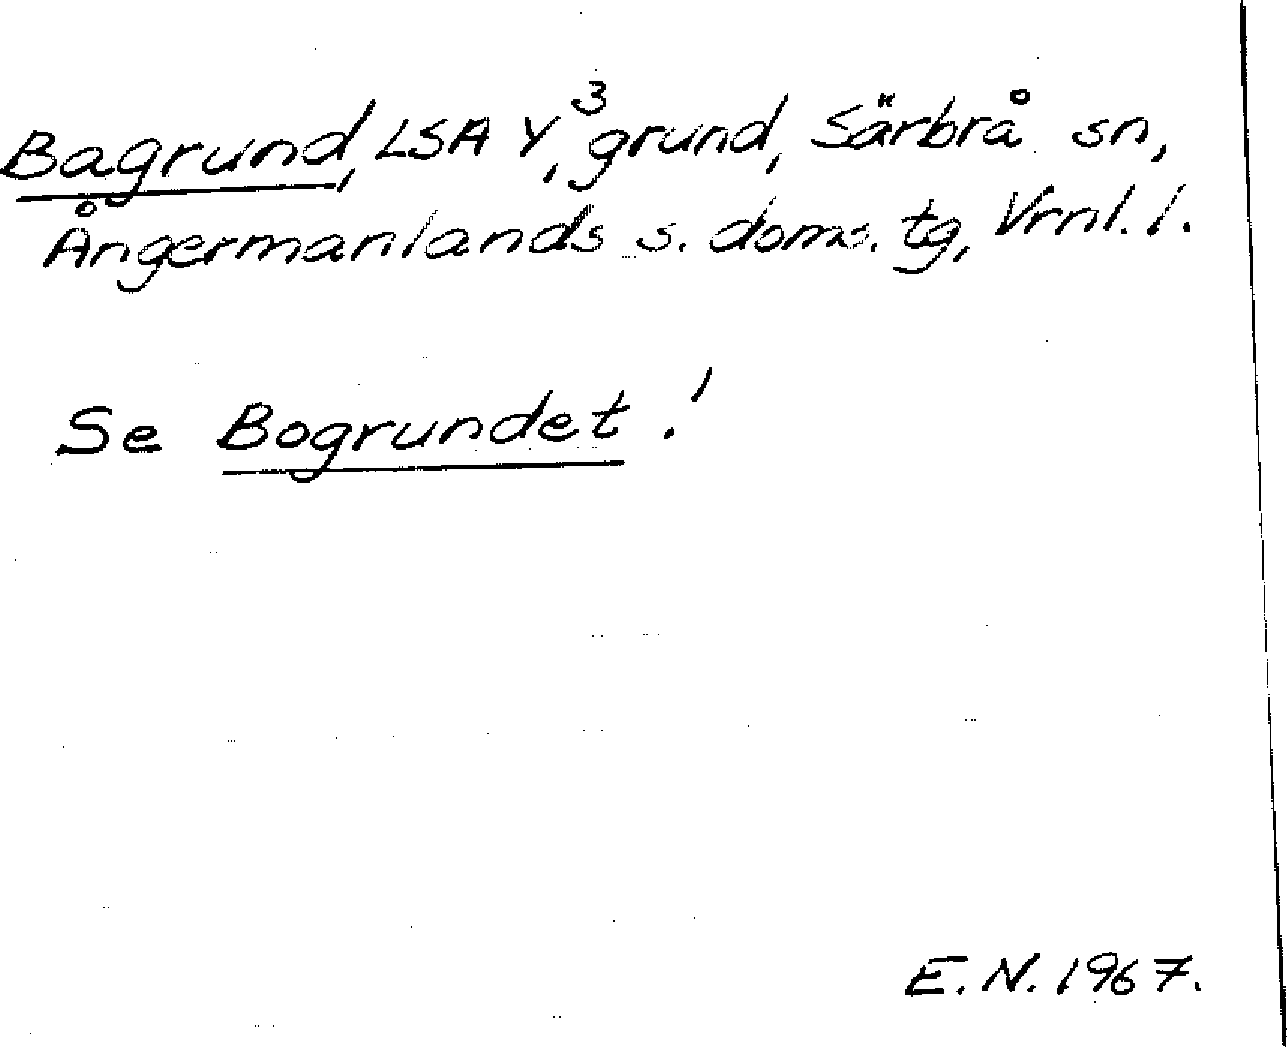 Bagrund, LSA Y³, grund, Särbrå sn,
Ångermanlands s. doms. tg, Vrnl. l.
Se Bogrundet!
E. N. 1967.